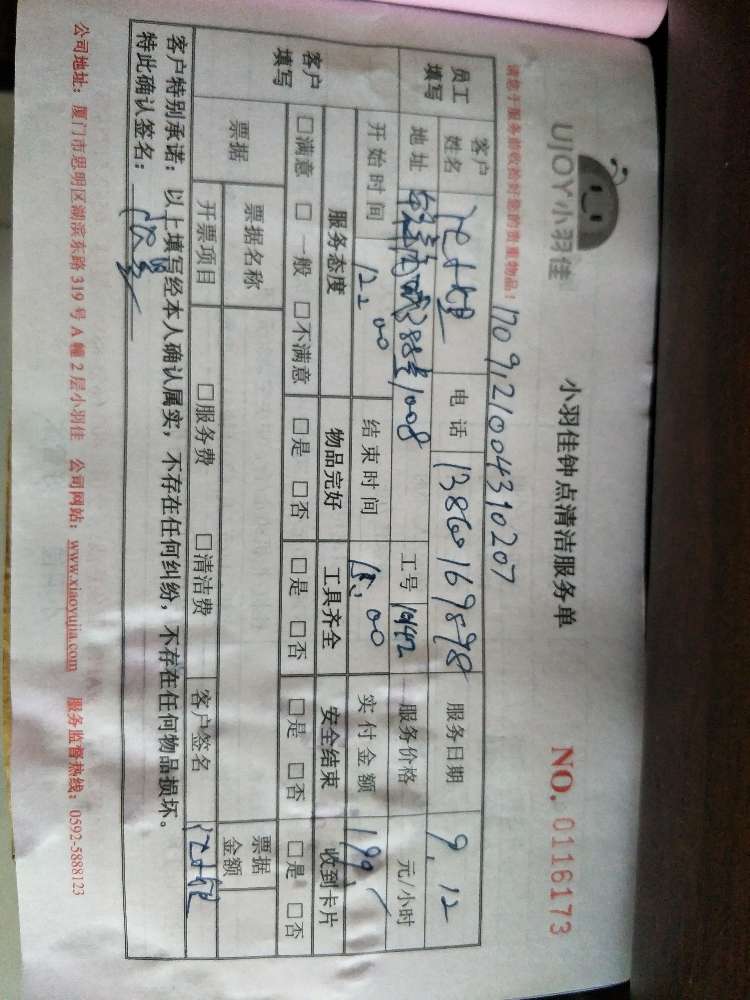 UJOY小羽佳
小羽佳钟点清洁服务单
NO. 0116173
请您于服务前收拾好您的贵重物品!
17091210043 10207
员工填写 客户姓名 电话 13860169898 服务日期 9.12
地址 388 1008 工号 19142 服务价格 元/小时
开始时间 12:00 结束时间 15:00 实付金额 199
客户填写 服务态度 物品完好 工具齐全 安全结束 收到卡片
□满意 □一般 □不满意 □是 □否 □是 □否 □是 □否 □是 □否
票据 票据名称 票据金额
开票项目 □服务费 □清洁费 客户签名
客户特别承诺:以上填写经本人确认属实,不存在任何纠纷,不存在任何物品损坏。
特此确认签名:
公司地址:厦门市思明区湖滨东路 319 号 A 幢 2 层小羽佳 公司网站:www.xiaoyujia.com 服务监督热线:0592-5888123